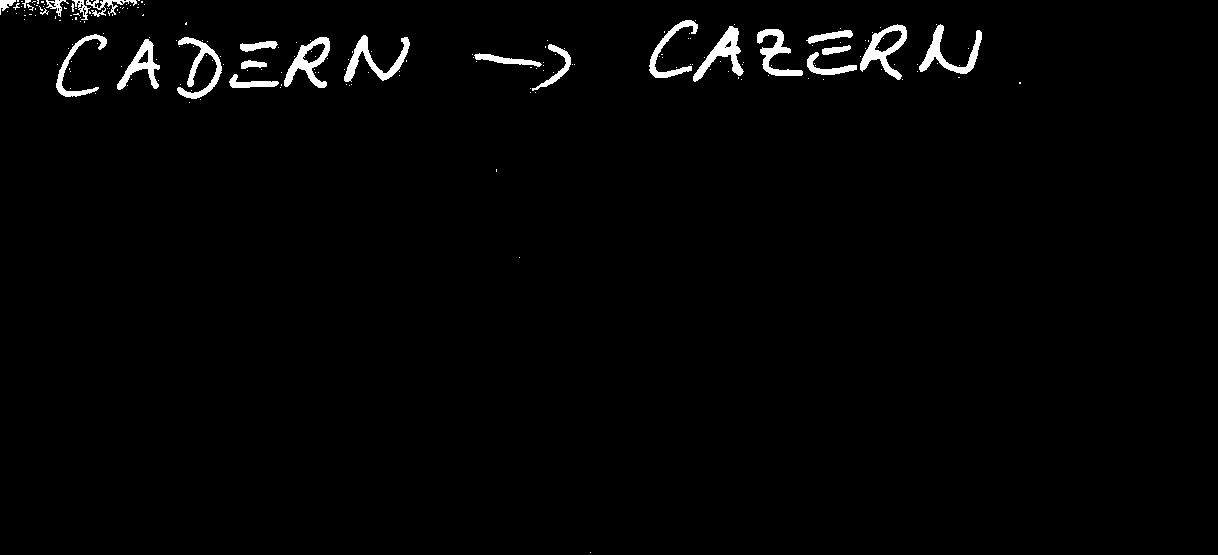 CADERN → CAZERN